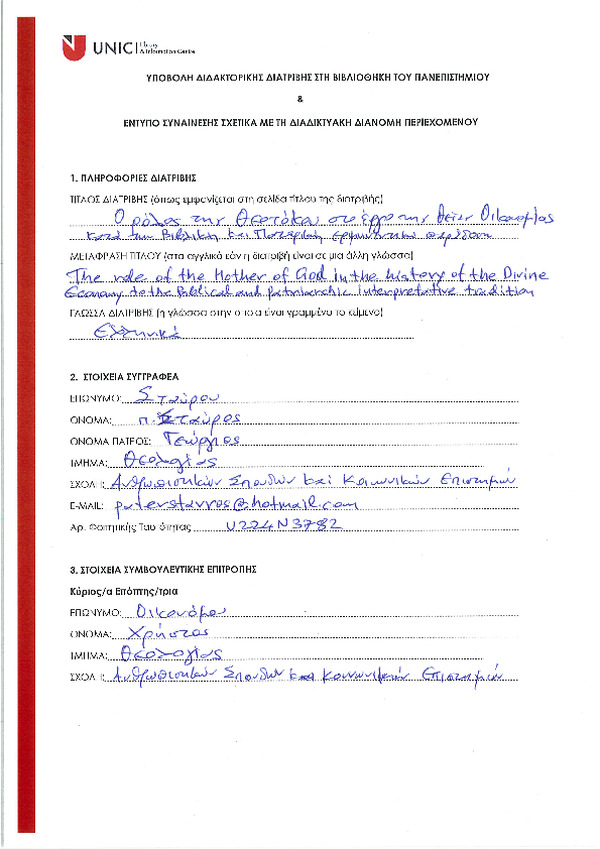 UNIC | Library & Information Centre
ΥΠΟΒΟΛΗ ΔΙΔΑΚΤΟΡΙΚΗΣ ΔΙΑΤΡΙΒΗΣ ΣΤΗ ΒΙΒΛΙΟΘΗΚΗ ΤΟΥ ΠΑΝΕΠΙΣΤΗΜΙΟΥ
&
ΕΝΤΥΠΟ ΣΥΝΑΙΝΕΣΗΣ ΣΧΕΤΙΚΑ ΜΕ ΤΗ ΔΙΑΔΙΚΤΥΑΚΗ ΔΙΑΝΟΜΗ ΠΕΡΙΕΧΟΜΕΝΟΥ
1. ΠΛΗΡΟΦΟΡΙΕΣ ΔΙΑΤΡΙΒΗΣ
ΤΙΤΛΟΣ ΔΙΑΤΡΙΒΗΣ (όπως εμφανίζεται στη σελίδα τίτλου της διατριβής)
Ο ρόλος της Θεοτόκου στο έργο της Θείας Οικονομίας
κατά την Βιβλική και Πατερική ερμηνευτική παράδοση
ΜΕΤΑΦΡΑΣΗ ΤΙΤΛΟΥ (στα αγγλικά εάν η διατριβή είναι σε μια άλλη γλώσσα)
The role of the Mother of God in the history of the Divine
Economy to the Biblical and patriarchic interpretative tradition
ΓΛΩΣΣΑ ΔΙΑΤΡΙΒΗΣ (η γλώσσα στην οποία είναι γραμμένο το κείμενο)
Ελληνικά
2. ΣΤΟΙΧΕΙΑ ΣΥΓΓΡΑΦΕΑ
ΕΠΩΝΥΜΟ: Σταύρου
ΟΝΟΜΑ: π. Σταύρος
ΟΝΟΜΑ ΠΑΤΡΟΣ: Γεώργιος
ΤΜΗΜΑ: Θεολογίας
ΣΧΟΛΗ: Ανθρωπιστικών Σπουδών και Κοινωνικών Επιστημών
E-MAIL: paterstavros@hotmail.com
Αρ. Φοιτητικής Ταυτότητας U224N3782
3. ΣΤΟΙΧΕΙΑ ΣΥΜΒΟΥΛΕΥΤΙΚΗΣ ΕΠΙΤΡΟΠΗΣ
Κύριος/α Επόπτης/τρια
ΕΠΩΝΥΜΟ: Οικονόμου
ΟΝΟΜΑ: Χρήστος
ΤΜΗΜΑ: Θεολογίας
ΣΧΟΛΗ: Ανθρωπιστικών Σπουδών και Κοινωνικών Επιστημών